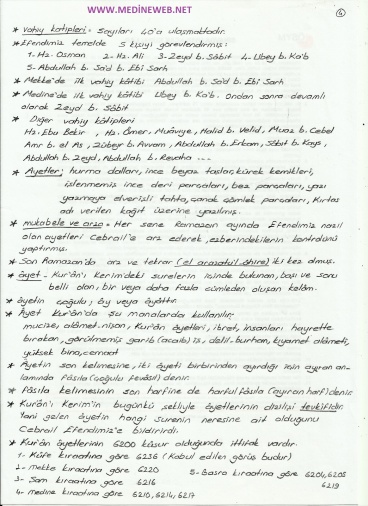 WWW.MEDINEWEB.NET
4
* Vahiy kâtipleri = Sayıları 40'a ulaşmaktadır.
* Efendimiz temelde 5 kişiyi görevlendirmiş:
1- Hz. Osman 2- Hz. Ali 3- Zeyd b. Sâbit 4- Übey b. Ka'b
5- Abdullah b. Sa'd b. Ebi Sarh
* Mekke'de ilk vahiy kâtibi Abdullah b. Sa'd b. Ebi Sarh
* Medine'de ilk vahiy kâtibi Übey b. Ka'b. Ondan sonra devamlı
olarak Zeyd b. Sâbit
* Diğer vahiy kâtipleri
Hz. Ebu Bekir, Hz. Ömer, Muâviye, Halid b. Velid, Muaz b. Cebel
Amr b. el As, Zübeyr b. Avvam, Abdullah b. Erkam, Sâbit b. Kays,
Abdullah b. Zeyd, Abdullah b. Revaha ....
* Ayetler; hurma dalları, ince beyaz taşlar, kürek kemikleri,
işlenmemiş ince deri parçaları, bez parçaları, yazı
yazmaya elverişli tahta, çanak çömlek parçaları, Kırtas
adı verilen kağıt üzerine yazılmış.
* mukabele ve arza = Her sene Ramazan ayında Efendimiz nazil
olan ayetleri Cebrail'e arz ederek, ezberindekilerin kontrolünü
yaptırmış.
* Son Ramazan'da arz ve tekrar (el arazatul âhire) iki kez olmuş.
* âyet - Kur'ân'ı Kerim'deki surelerin içinde bulunan, başı ve sonu
belli olan, bir veya daha fazla cümleden oluşan kelâm.
* âyetin çoğulu; ây veya âyâttır.
* Âyet Kur'ân'da şu manalarda kullanılır:
mucize, alâmet-nişan, Kur'ân âyetleri, ibret, insanları hayrette
bırakan, görülmemiş garib (acaib) iş, delil-burhan, kıyamet alâmeti,
yüksek bina, cemaat
* Âyetin son kelimesine, iki âyeti birbirinden ayırdığı için ayıran an-
lamında Fâsıla (çoğulu fevâsıl) denir.
* Fâsıla kelimesinin son harfine de harful fâsıla (ayıran harf) denir
* Kurân'ı Kerim'in bugünkü şekliyle âyetlerinin dizilişi tevkifidir.
Yani gelen âyetin hangi surenin neresine ait olduğunu
Cebrail Efendimiz'e bildirirdi.
* Kur'ân âyetlerinin 6200 küsur olduğunda ittifak vardır.
1- Kûfe kıraatına göre 6236 (Kabul edilen görüş budur)
2- mekke kıraatına göre 6220 5- Basra kıraatına göre 6204, 6205
3- Şam kıraatına göre 6216 6219
4- medine kıraatına göre 6210, 6214, 6217